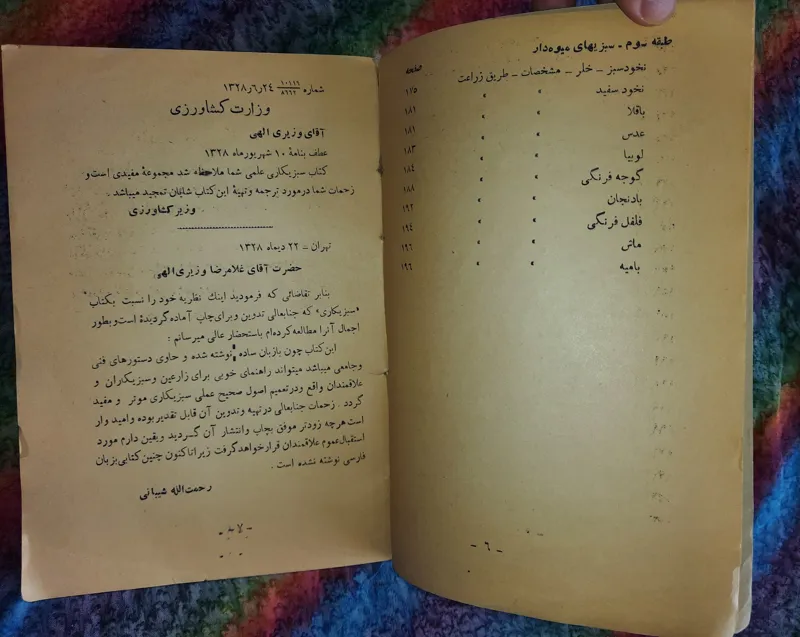 طبقه دوم ـ سبزیهای میوه‌دار
صفحه
نخودسبز ـ خلر ـ مشخصات ـ طریق زراعت ۱۷۵
نخود سفید » » ۱۸۱
باقلا » » ۱۸۱
عدس » » ۱۸۳
لوبیا » » ۱۸۴
گوجه فرنگی » » ۱۸۸
بادنجان » » ۱۹۲
فلفل فرنگی » » ۱۹۴
ماش » » ۱۹۶
بامیه » » ۱۹۶
ـ ۶ ـ
شماره ۱۰۱۱۹/۸۶۶۲ ۲۴ر۶ر۱۳۲۸
وزارت کشاورزی
آقای وزیری الهی
عطف بنامهٔ ۱۰ شهریورماه ۱۳۲۸
کتاب سبزیکاری علمی شما ملاحظه شد مجموعهٔ مفیدی است و
زحمات شما درمورد ترجمه و تهیهٔ این کتاب شایان تمجید میباشد .
وزیر کشاورزی
تهران ـ ۲۲ دیماه ۱۳۲۸
حضرت آقای غلامرضا وزیری الهی
بنابر تقاضائی که فرمودید اینك نظریه خود را نسبت بکتاب
«سبزیکاری» که جنابعالی تدوین و برای چاپ آماده گردیده است و بطور
اجمال آنرا مطالعه کرده‌ام باستحضار عالی میرسانم :
این کتاب چون بازبان ساده نوشته شده و حاوی دستورهای فنی
و جامعی میباشد میتواند راهنمای خوبی برای زارعین و سبزیکاران و
علاقمندان واقع و در تعمیم اصول صحیح عملی سبزیکاری موثر و مفید
گردد . زحمات جنابعالی در تهیه و تدوین آن قابل تقدیر بوده و امید وار
است هرچه زودتر موفق بچاپ و انتشار آن گردید و یقین دارم مورد
استقبال عموم علاقمندان قرار خواهد گرفت زیرا تا کنون چنین کتابی بزبان
فارسی نوشته نشده است .
رحمت‌الله شیبانی
ـ ۷ ـ